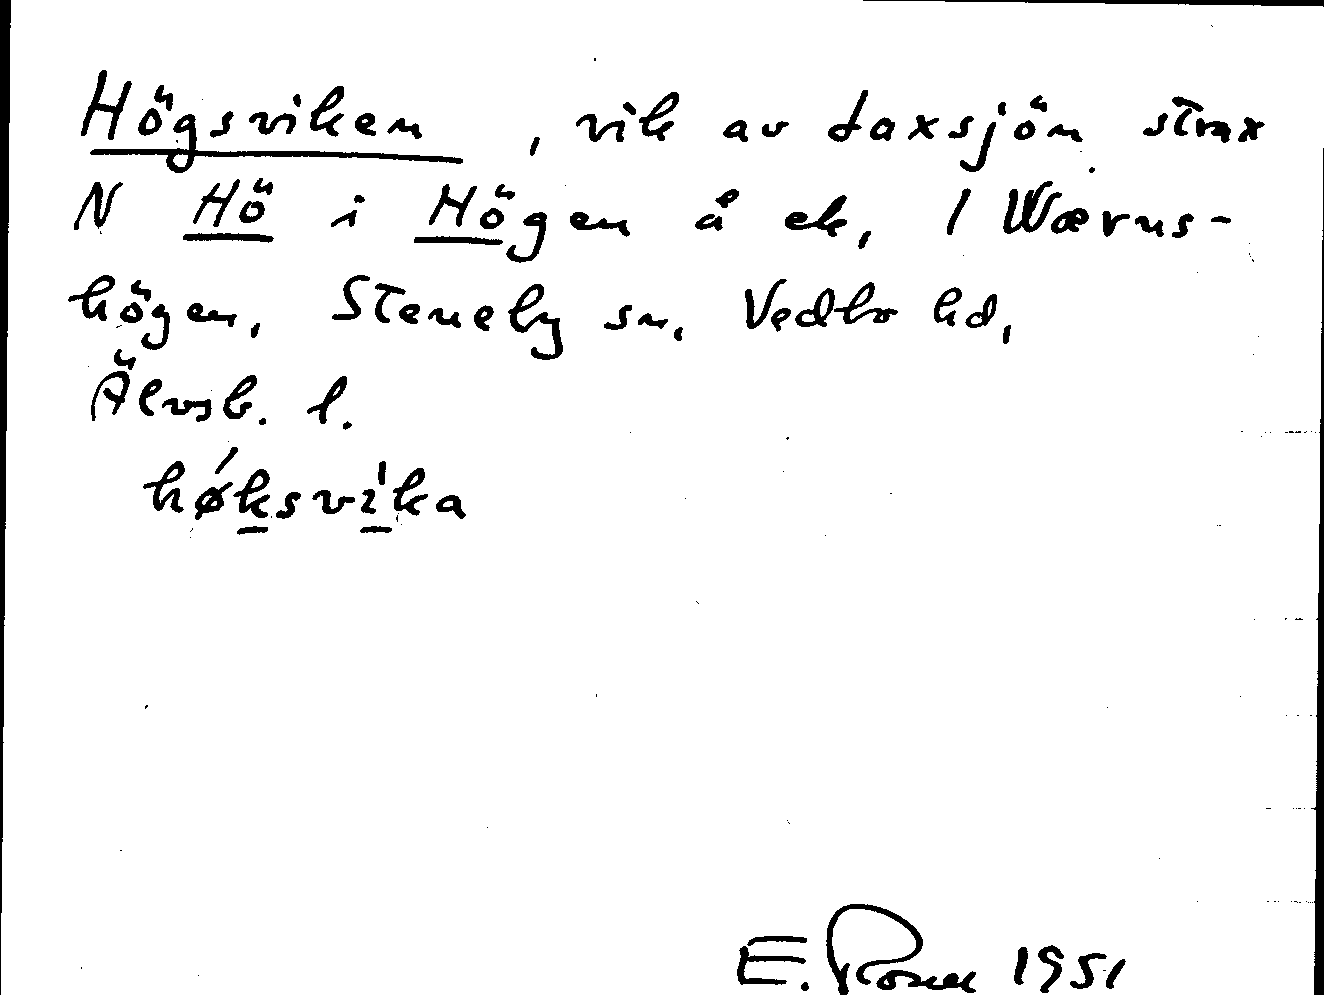 Högsviken, vik av Laxsjön strax
N Hö i Högen å ek, 1 Wærus-
högen, Steneby sn, Vedbo hd,
Älvsb. l.
hǿksvi̍ka
E. Rosell 1951